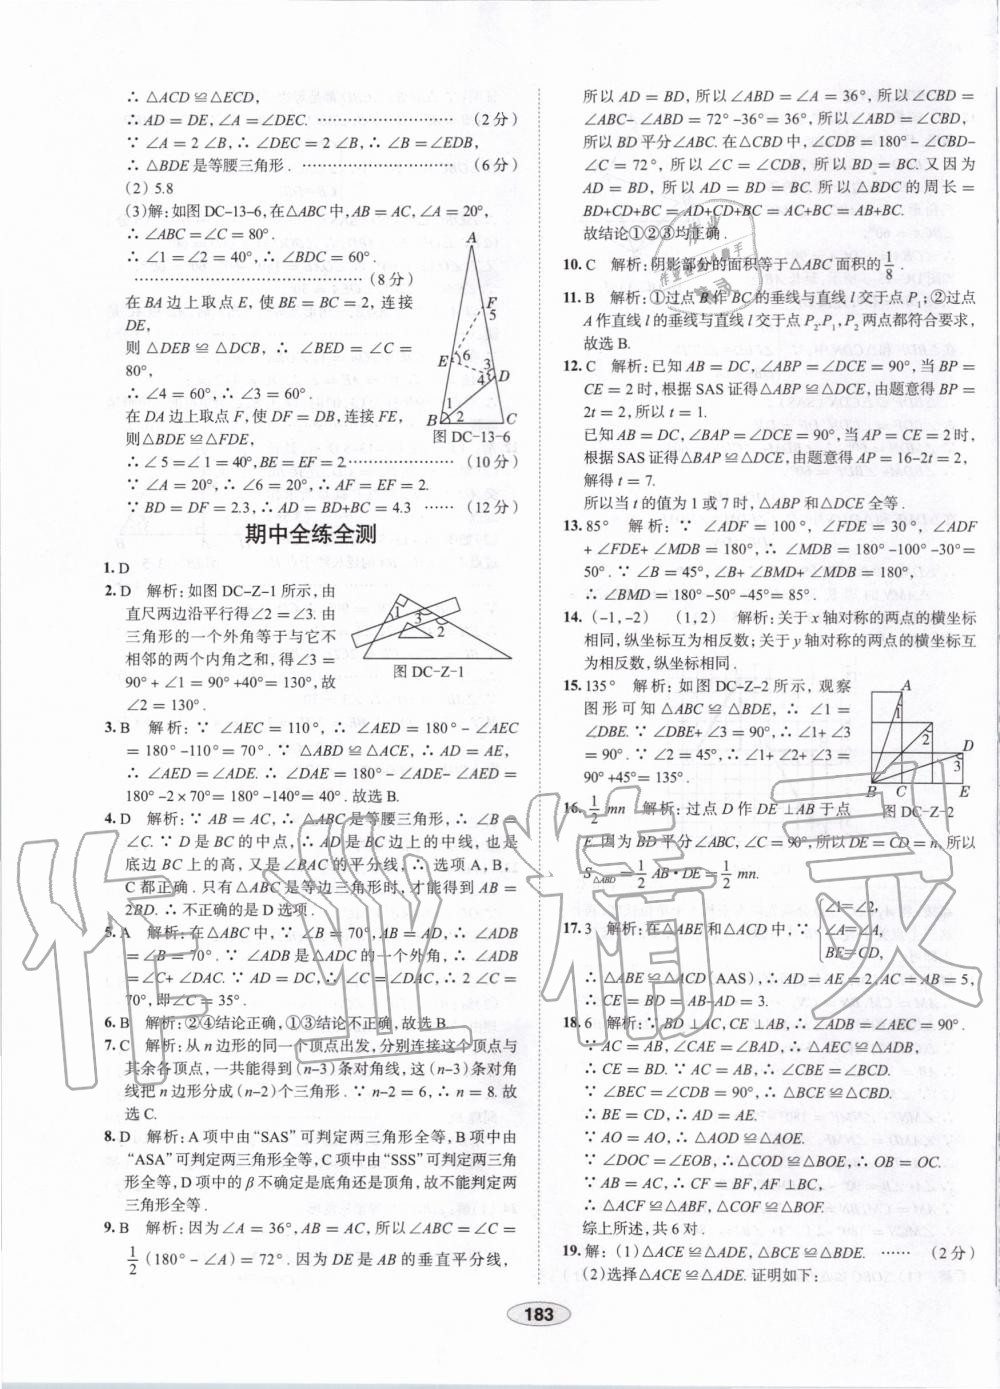 ∴ △ACD ≌△ECD,
∴ AD = DE, ∠A = ∠DEC. ……………………… (2 分)
∵ ∠A = 2 ∠B, ∴ ∠DEC = 2 ∠B, ∴ ∠B = ∠EDB,
∴ △BDE 是等腰三角形. ……………………… (6 分)
(2) 5.8
(3)解: 如图 DC-13-6, 在△ABC 中, AB = AC, ∠A = 20°,
∴ ∠ABC = ∠C = 80°.
∴ ∠1 = ∠2 = 40°, ∴ ∠BDC = 60°.
……………………… (8 分)
在 BA 边上取点 E, 使 BE = BC = 2, 连接
DE,
则 △DEB ≌ △DCB, ∴ ∠BED = ∠C =
80°.
∴ ∠4 = 60°, ∴ ∠3 = 60°.
在 DA 边上取点 F, 使 DF = DB, 连接 FE,
则△BDE ≌△FDE,
∴ ∠5 = ∠1 = 40°, BE = EF = 2. …………… (10 分)
∵ ∠A = 20°, ∴ ∠6 = 20°, ∴ AF = EF = 2.
∵ BD = DF = 2.3, ∴ AD = BD+BC = 4.3 …… (12 分)
A
F
5
E
6
3
4
D
1
2
B
C
图 DC-13-6
期中全练全测
1. D
2. D 解析: 如图 DC-Z-1 所示, 由
直尺两边沿平行得∠2 = ∠3. 由
三角形的一个外角等于与它不
相邻的两个内角之和, 得∠3 =
90° + ∠1 = 90° +40° = 130°, 故
∠2 = 130°.
1
3
2
图 DC-Z-1
3. B 解析: ∵ ∠AEC = 110°, ∴ ∠AED = 180° - ∠AEC
= 180° -110° = 70°. ∵ △ABD ≌△ACE, ∴ AD = AE,
∴ ∠AED = ∠ADE. ∴ ∠DAE = 180° - ∠ADE - ∠AED =
180° -2×70° = 180° -140° = 40°. 故选 B.
4. D 解析: ∵ AB = AC, ∴ △ABC 是等腰三角形, ∴ ∠B =
∠C. ∵ D 是 BC 的中点, ∴ AD 是 BC 边上的中线, 也是
底边 BC 上的高, 又是∠BAC 的平分线, ∴ 选项 A, B,
C 都正确. 只有△ABC 是等边三角形时, 才能得到 AB =
2BD. ∴ 不正确的是 D 选项.
5. A 解析: 在△ABC 中, ∵ ∠B = 70°, AB = AD, ∴ ∠ADB
= ∠B = 70°. ∵ ∠ADB 是△ADC 的一个外角, ∴ ∠ADB
= ∠C+ ∠DAC. ∵ AD = DC, ∴ ∠C = ∠DAC, ∴ 2 ∠C =
70°, 即∠C = 35°.
6. B 解析: ②④结论正确, ①③结论不正确, 故选 B.
7. C 解析: 从 n 边形的同一个顶点出发, 分别连接这个顶点与
其余各顶点, 一共能得到 (n-3) 条对角线, 这 (n-3) 条对角
线把 n 边形分成(n-2)个三角形. ∵ n-2 = 6, ∴ n = 8. 故
选 C.
8. D 解析: A 项中由“SAS”可判定两三角形全等, B 项中由
“ASA”可判定两三角形全等, C 项中由“SSS”可判定两三角
形全等, D 项中的 β 不确定是底角还是顶角, 故不能判定两
三角形全等.
9. B 解析: 因为∠A = 36°, AB = AC, 所以∠ABC = ∠C =
1/2 (180° - ∠A) = 72°. 因为 DE 是 AB 的垂直平分线,
所以 AD = BD, 所以 ∠ABD = ∠A = 36°, 所以 ∠CBD =
∠ABC- ∠ABD = 72° -36° = 36°, 所以 ∠ABD = ∠CBD,
所以 BD 平分∠ABC. 在△BCD 中, ∠CDB = 180° - ∠CBD-
∠C = 72°, 所以 ∠C = ∠CDB, 所以 BD = BC. 又因为
AD = BD, 所以 AD = BD = BC. 所以△BDC 的周长 =
BD+CD+BC = AD+CD+BC = AC+BC = AB+BC.
故结论①②③均正确.
10. C 解析: 阴影部分的面积等于△ABC 面积的 1/8.
11. B 解析: ①过点 B 作 BC 的垂线与直线 l 交于点 P₁; ②过点
A 作直线 l 的垂线与直线 l 交于点 P₂. P₁, P₂ 两点都符合要求,
故选 B.
12. C 解析: 已知 AB = DC, ∠ABP = ∠DCE = 90°, 当 BP =
CE = 2 时, 根据 SAS 证得△ABP ≌△DCE, 由题意得 BP =
2t = 2, 所以 t = 1.
已知 AB = DC, ∠BAP = ∠DCE = 90°, 当 AP = CE = 2 时,
根据 SAS 证得△BAP ≌△DCE, 由题意得 AP = 16-2t = 2,
解得 t = 7.
所以当 t 的值为 1 或 7 时, △ABP 和△DCE 全等.
13. 85° 解析: ∵ ∠ADF = 100°, ∠FDE = 30°, ∠ADF
+ ∠FDE+ ∠MDB = 180°, ∴ ∠MDB = 180° -100° -30° =
50°. ∵ ∠B = 45°, ∠B+ ∠BMD+ ∠MDB = 180°,
∴ ∠BMD = 180° -50° -45° = 85°.
14. (-1, -2) (1, 2) 解析: 关于 x 轴对称的两点的横坐标
相同, 纵坐标互为相反数; 关于 y 轴对称的两点的横坐标互
为相反数, 纵坐标相同.
15. 135° 解析: 如图 DC-Z-2 所示, 观察
图形可知△ABC ≌ △BDE, ∴ ∠1 =
∠DBE. ∵ ∠DBE+ ∠3 = 90°, ∴ ∠1+
∠3 = 90°. ∵ ∠2 = 45°, ∴ ∠1+ ∠2+ ∠3 =
90° +45° = 135°.
A
1
2
D
3
B
C
E
图 DC-Z-2
16. 1/2 mn 解析: 过点 D 作 DE ⊥AB 于点
E. 因为 BD 平分∠ABC, ∠C = 90°, 所以 DE = CD = n. 所以
S△ABD = 1/2 AB·DE = 1/2 mn.
17. 3 解析: 在△ABE 和△ACD 中, ∵ { ∠1 = ∠2,
∠A = ∠A,
BE = CD,
∴ △ABE ≌△ACD (AAS), ∴ AD = AE = 2, AC = AB = 5,
∴ CE = BD = AB-AD = 3.
18. 6 解析: ∵ BD ⊥AC, CE ⊥AB, ∴ ∠ADB = ∠AEC = 90°.
∵ AC = AB, ∠CAE = ∠BAD, ∴ △AEC ≌△ADB,
∴ CE = BD. ∵ AC = AB, ∴ ∠CBE = ∠BCD.
∵ ∠BEC = ∠CDB = 90°, ∴ △BCE ≌△CBD.
∴ BE = CD, ∴ AD = AE.
∵ AO = AO, ∴ △AOD ≌△AOE.
∵ ∠DOC = ∠EOB, ∴ △COD ≌△BOE, ∴ OB = OC.
∵ AB = AC, ∴ CF = BF, AF ⊥BC,
∴ △ACF ≌△ABF, △COF ≌△BOF.
综上所述, 共 6 对.
19. 解: (1) △ACE ≌△ADE, △BCE ≌△BDE. …… (2 分)
(2)选择△ACE ≌△ADE. 证明如下:
183
作业精灵